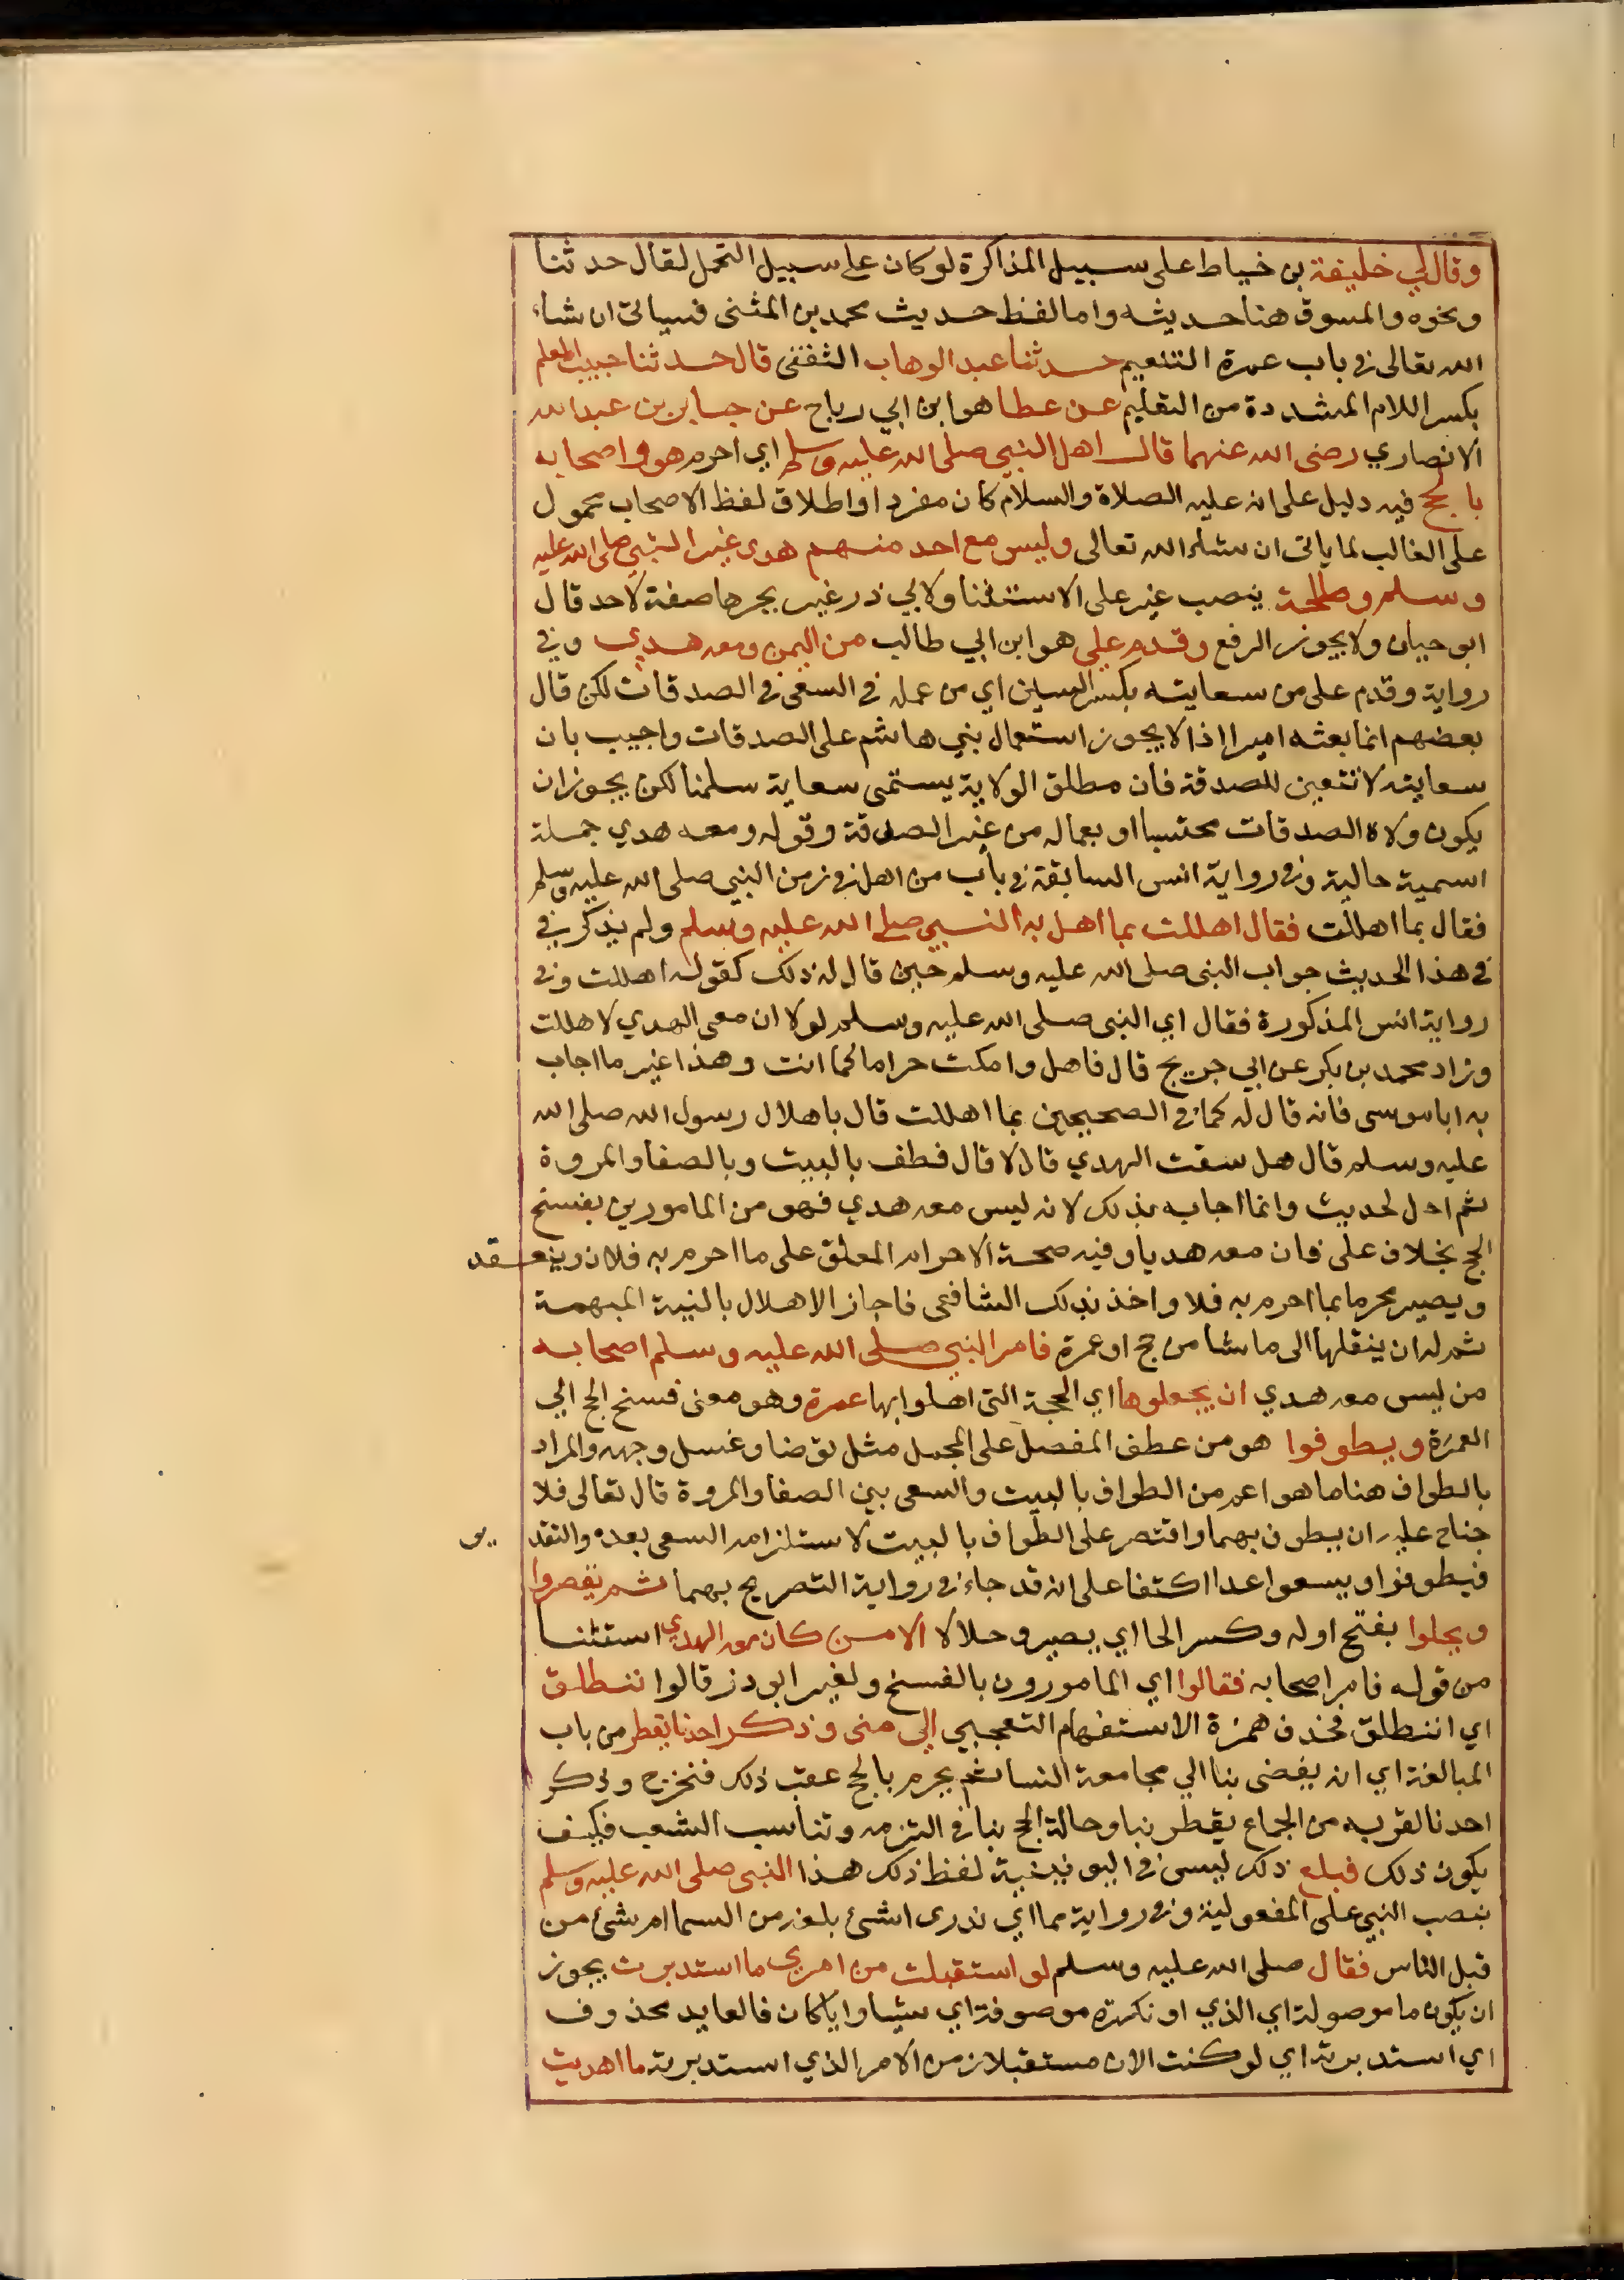 وقال لي خليفة بن خياط على سبيل المذاكرة لو كان على سبيل التحمل لقال حدثنا
ونحوه والمسوق هنا حديثه واما لفظ حديث محمد بن المثنى فسياتي ان شاء
الله تعالى في باب عمرة التنعيم حدثنا عبد الوهاب الثقفي قال حدثنا حبيب المعلم
بكسر اللام المشددة من التعليم عن عطا هو ابن ابي رباح عن جابر بن عبد الله
الانصاري رضي الله عنهما قال اهل النبي صلى الله عليه وسلم اي احرم هو واصحابه
بالحج فيه دليل على انه عليه الصلاة والسلام كان مفردا واطلاق لفظ الاصحاب محمول
على الغالب لما ياتي ان شاء الله تعالى وليس مع احد منهم هدي غير النبي صلى الله عليه
وسلم وطلحة بنصب غير على الاستثنا ولابي ذر غير بجرها صفة لاحد قال
ابو حيان ولا يجوز الرفع وقدم علي هو ابن ابي طالب من اليمن ومعه هدي وفي
رواية وقدم على من سعايته بكسر السين اي من عمله في السعي في الصدقات لكن قال
بعضهم انما بعثه اميرا اذ لا يجوز استعمال بني هاشم على الصدقات واجيب بان
سعايته لا تتعين للصدقة فان مطلق الولاية يسمى سعاية سلمنا لكن يجوز ان
يكون ولاه الصدقات محتسبا او بعماله من غير الصدقة وقوله ومعه هدي جملة
اسمية حالية وفي رواية انس السابقة في باب من اهل في زمن النبي صلى الله عليه وسلم
فقال بما اهللت فقال اهللت بما اهل به النبي صلى الله عليه وسلم ولم يذكر في
في هذا الحديث جواب النبي صلى الله عليه وسلم حين قال له ذلك كقوله اهللت وفي
رواية انس المذكورة فقال اي النبي صلى الله عليه وسلم لولا ان معي الهدي لاهللت
وزاد محمد بن بكر عن ابي جريج قال فاهل وامكث حراما كما انت وهذا غير ما اجاب
به ابا موسى فانه قال له كما في الصحيحين بما اهللت قال باهلال رسول الله صلى الله
عليه وسلم قال هل سقت الهدي قال لا قال فطف بالبيت وبالصفا والمروة
ثم احل لحديث وانما اجابه بذلك لانه ليس معه هدي فهو من المامورين بفسخ
الحج بخلاف على فان معه هديا وفيه صحة الاحرام المعلق على ما احرم به فلان وينعقد
ويصير محرما بما احرم به فلا واخذ بذلك الشافعي فاجاز الاهلال بالنية المبهمة
ثم له ان ينقلها الى ما شا من حج او عمرة فامر النبي صلى الله عليه وسلم اصحابه
من ليس معه هدي ان يجعلوها اي الحجة التي اهلوا بها عمرة وهو معنى فسخ الحج الي
العمرة ويطوفوا هو من عطف المفصل على المجمل مثل توضا وغسل وجهه والمراد
بالطواف هنا ما هو اعم من الطواف بالبيت والسعي بين الصفا والمروة قال تعالى فلا
جناح عليه ان يطوف بهما واقتصر على الطواف بالبيت لاستلزام السعي بعده والتقد ير
فيطوفوا ويسعوا عدا اكتفا على انه قد جاء في رواية التصريح بهما ثم يقصروا
ويحلوا بفتح اوله وكسر الحا اي يصيرو حلالا الا من كان معه الهدي استثنا
من قوله فامر اصحابه فقالوا اي المامورون بالفسخ ولغير ابو ذر قالوا ننطلق
اي اننطلق فحذف همزة الاستفهام التعجبي الى منى وذكر احدنا يقطر من باب
المبالغة اي انه يفضي بنا الي مجامعة النسا ثم يحرم بالحج عقب ذلك فنخرج وذكر
احدنا لقربه من الجماع يقطر نبا وحالة الحج بنا في التزمه وتناسب الشعب فكيف
يكون ذلك فبلغ ذلك ليس في اليونينية لفظ ذلك هذا النبي صلى الله عليه وسلم
بنصب النبي على المفعولية وفي رواية مما اي ندري اشئ بلغه من السما ام شئ من
قبل الناس فقال صلى الله عليه وسلم لو استقبلت من امري ما استدبرت يجوز
ان يكون ما موصولة اي الذي او نكرة موصوفة اي شيئا وايا كان فالعايد محذوف
اي استدبرته اي لو كنت الان مستقبلا زمن الامر الذي استدبرته ما اهديت